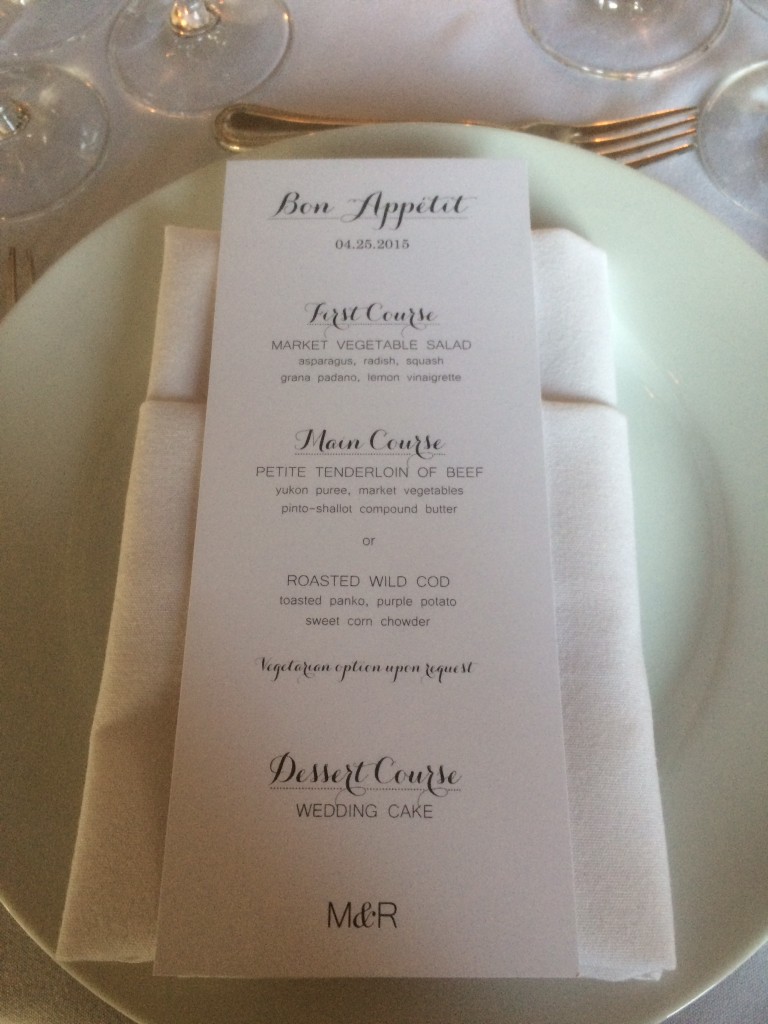 Bon Appétit
04.25.2015
First Course
MARKET VEGETABLE SALAD
asparagus, radish, squash
grana padano, lemon vinaigrette
Main Course
PETITE TENDERLOIN OF BEEF
yukon puree, market vegetables
pinto-shallot compound butter
or
ROASTED WILD COD
toasted panko, purple potato
sweet corn chowder
Vegetarian option upon request
Dessert Course
WEDDING CAKE
M&R